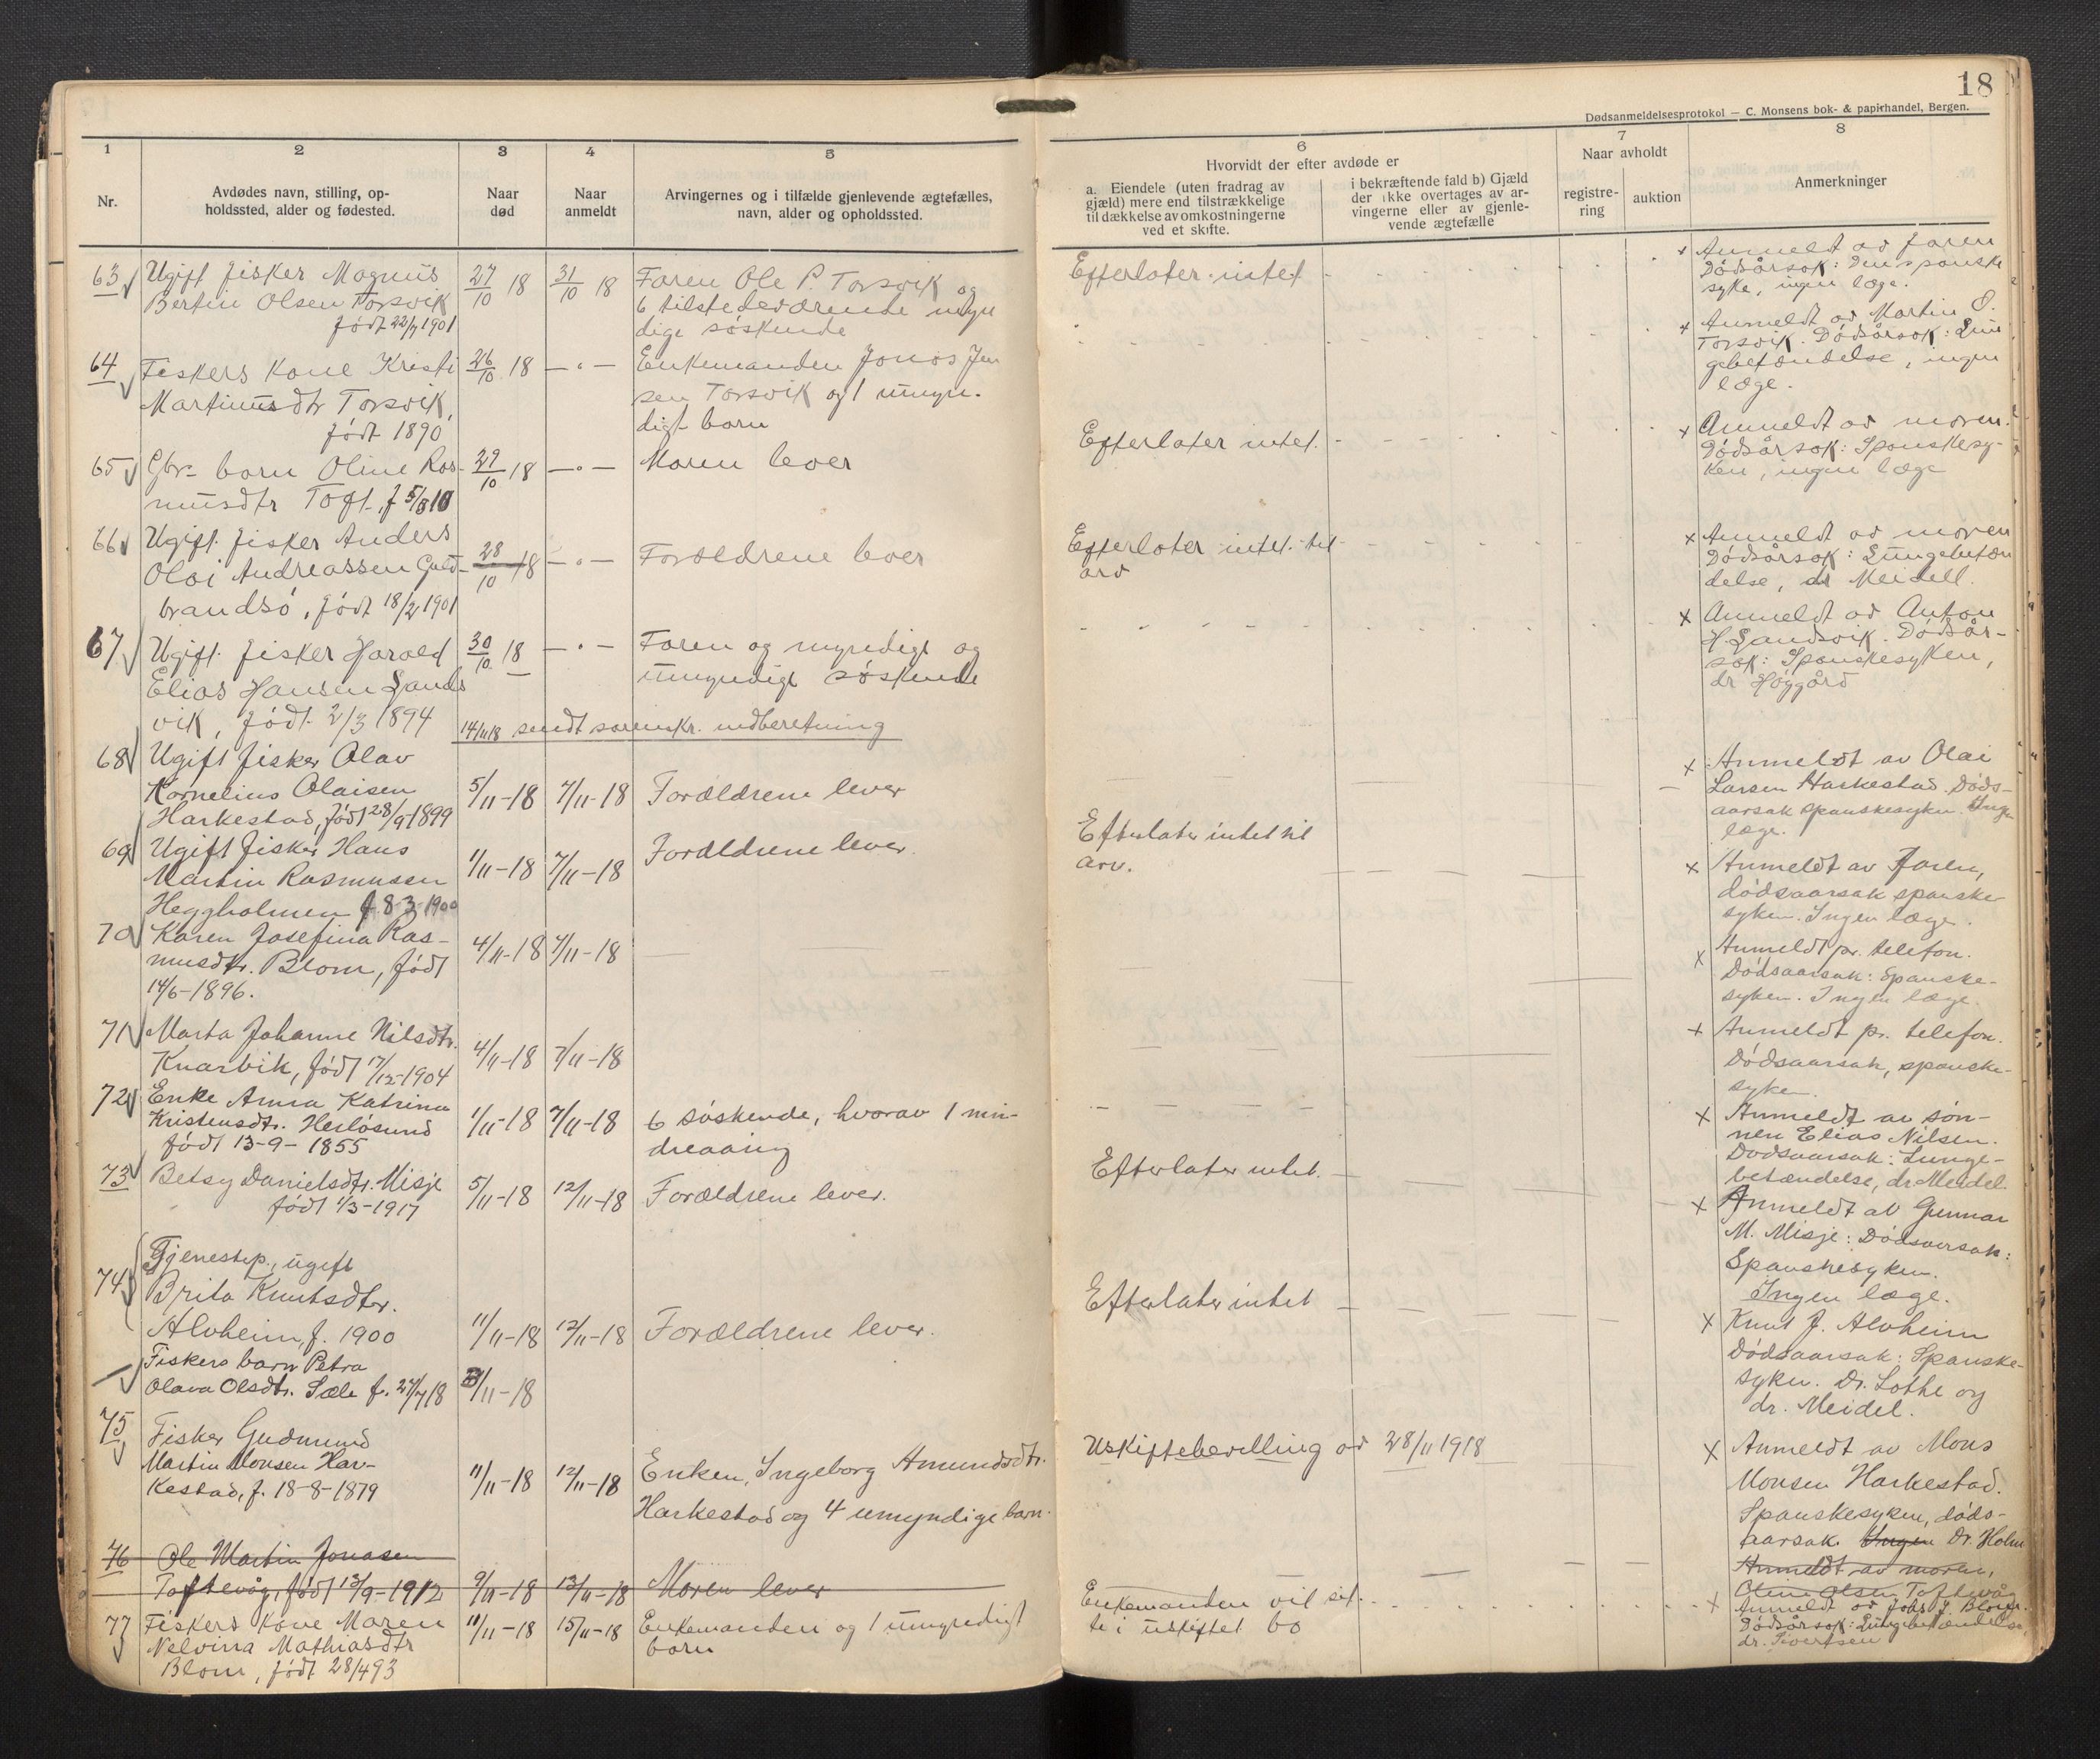 18
Dødsanmeldelsesprotokol — C. Monsens bok- & papirhandel, Bergen.
1
2
3
4
5
6
7
8
Nr.
Avdødes navn, stilling, op-
holdssted, alder og fødested.
Naar
død
Naar
anmeldt
Arvingernes og i tilfælde gjenlevende ægtefælles,
navn, alder og opholdssted.
Hvorvidt der efter avdøde er
a. Eiendele (uten fradrag av
gjæld) mere end tilstrækkelige
til dækkelse av omkostningerne
ved et skifte.
i bekræftende fald b) Gjæld
der ikke overtages av ar-
vingerne eller av gjenle-
vende ægtefælle
Naar avholdt
registre-
ring
auktion
Anmerkninger
63
Ugift fisker Magnus
Bertin Olsen Torsvik
født 22/7 1901
27/10 18
31/10 18
Faren Ole P. Torsvik og
6 tilstedeværende umyn
dige søskende
Efterlater intet
x Anmeldt av faren
Dødsårsak: Den spanske
syke, ingen læge.
64
Fiskers kone Kristi
Martinusdtr Torsvik,
født 1890
26/10 18
— " —
Enkemanden Jonas Jen
sen Torsvik og 1 umyn.
digt barn
x Anmeldt av Martin O.
Torsvik. Dødsårsak: Lun
gebetændelse, ingen
læge.
65
Gbr. barn Oline Ras-
musdtr Toft, f 5/8 10
29/10 18
— " —
Moren lever
Efterlater intet.
x Anmeldt av moren.
Dødsårsak: Spanskesy-
ken, ingen læge
66
Ugift fisker Anders
Olai Andreassen Guld-
brandsø, født 18/2 1901
28/10 18
— " —
Forældrene lever
Efterlater intet til
arv
x Anmeldt av moren
Dødsårsak: Lungebetæn
delse, dr Meidell.
67
Ugift fisker Harald
Elias Hansen Lands
vik, født 2/3 1894
30/10 18
— " —
Faren og myndige og
umyndige søskende
x Anmeldt av Anton
H. Landsvik. Dødsår-
sak: Spanskesyken,
dr Høygård
14/11 18 sendt sorenskr. indberetning
68
Ugift fisker Olav
Kornelius Olaisen
Harkestad, født 28/9 1899
5/11-18
7/11-18
Forældrene lever
x Anmeldt av Olai
Larsen Harkestad. Døds-
aarsak spanskesyken. Ingen
læge.
69
Ugift fisker Hans
Martin Rasmussen
Heggholmen f. 8-3-1900
1/11-18
7/11-18
Forældrene lever.
Efterlater intet til
arv.
x Anmeldt av Faren,
dødsaarsak spanske-
syken. Ingen læge.
70
Karen Josefina Ras-
musdtr. Blom, født
14/6-1896.
4/11-18
7/11-18
x Anmeldt pr. telefon.
Dødsaarsak: Spanske-
syken. Ingen læge.
71
Marta Johanne Nilsdtr.
Knarvik, født 17/12-1904
4/11-18
7/11-18
x Anmeldt pr. telefon.
Dødsaarsak, spanske-
syke.
72
Enke Anna Katrina
Kristensdtr. Herløsund
født 13-9-1855
1/11-18
7/11-18
6 søskende, hvorav 1 min-
dreaarig
x Anmeldt av søn-
nen Elias Nilsen.
Dødsaarsak: Lunge-
betændelse, dr Meidel.
73
Betsy Danielsdtr. Misje
født 1/3-1917
5/11-18
12/11-18
Forældrene lever.
Efterlater intet.
x Anmeldt av Gunnar
M. Misje: Dødsaarsak:
Spanskesyken.
Ingen læge.
74
Tjenestep., ugift
Brita Knutsdtr.
Alvheim, f. 1900
11/11-18
12/11-18
Forældrene lever.
Efterlater intet
x Knut J. Alvheim
Dødsaarsak: Spanske-
syken. Dr. Lothe og
dr. Meidel.
Fiskers barn Petra
Olava Olsdtr. Sæle f. 27/7 18
3/11-18
75
Fisker Gudmund
Martin Monsen Har-
kestad, f. 18-8-1879
11/11-18
12/11-18
Enken, Ingeborg Amundsdtr.
Harkestad og 4 umyndige barn.
Uskiftebevilling av 28/11 1918
x Anmeldt av Mons
Monsen Harkestad.
Spanskesyken, døds-
aarsak. Ingen Dr. Holm
76
Ole Martin Jonasen
Toftevåg, født 13/9-1912
9/11-18
13/11-18
Moren lever
Anmeldt av moren,
Oline Olsen Toftevåg
77
Fiskers kone Maren
Nelvina Mathiasdtr
Blom, født 28/4 93
11/11-18
15/11-18
Enkemanden og 1 umyndigt
barn
Enkemanden vil sit.
te i uskiftet bo
x Anmeldt av Johs J. Blom.
Dødsårsak: Lungebetændelse
dr. Sivertsen